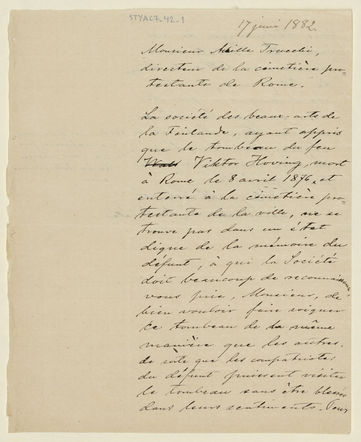 STYAC7_42_1
17 juin 1882.
Monsieur Trucchi,
directeur de la cimetière pro
testante de Rome.
La société des beaux-arts de
la Finlande, ayant appris
que le tombeau du feu
Viktor Hoving, mort
à Rome le 8 avril 1876, et
enterré à la cimetière pro
testante de la ville, ne se
trouve pas dans un état
digne de la mémoire du
défunt, à qui la Société
doit beaucoup de reconnaissance
vous prie, Monsieur, de
bien vouloir faire soigner
ce tombeau de la même
manière que les autres,
de sorte que les compatriotes
du défunt puissent visiter
le tombeau sans être blessés
dans leurs sentiments. Pour